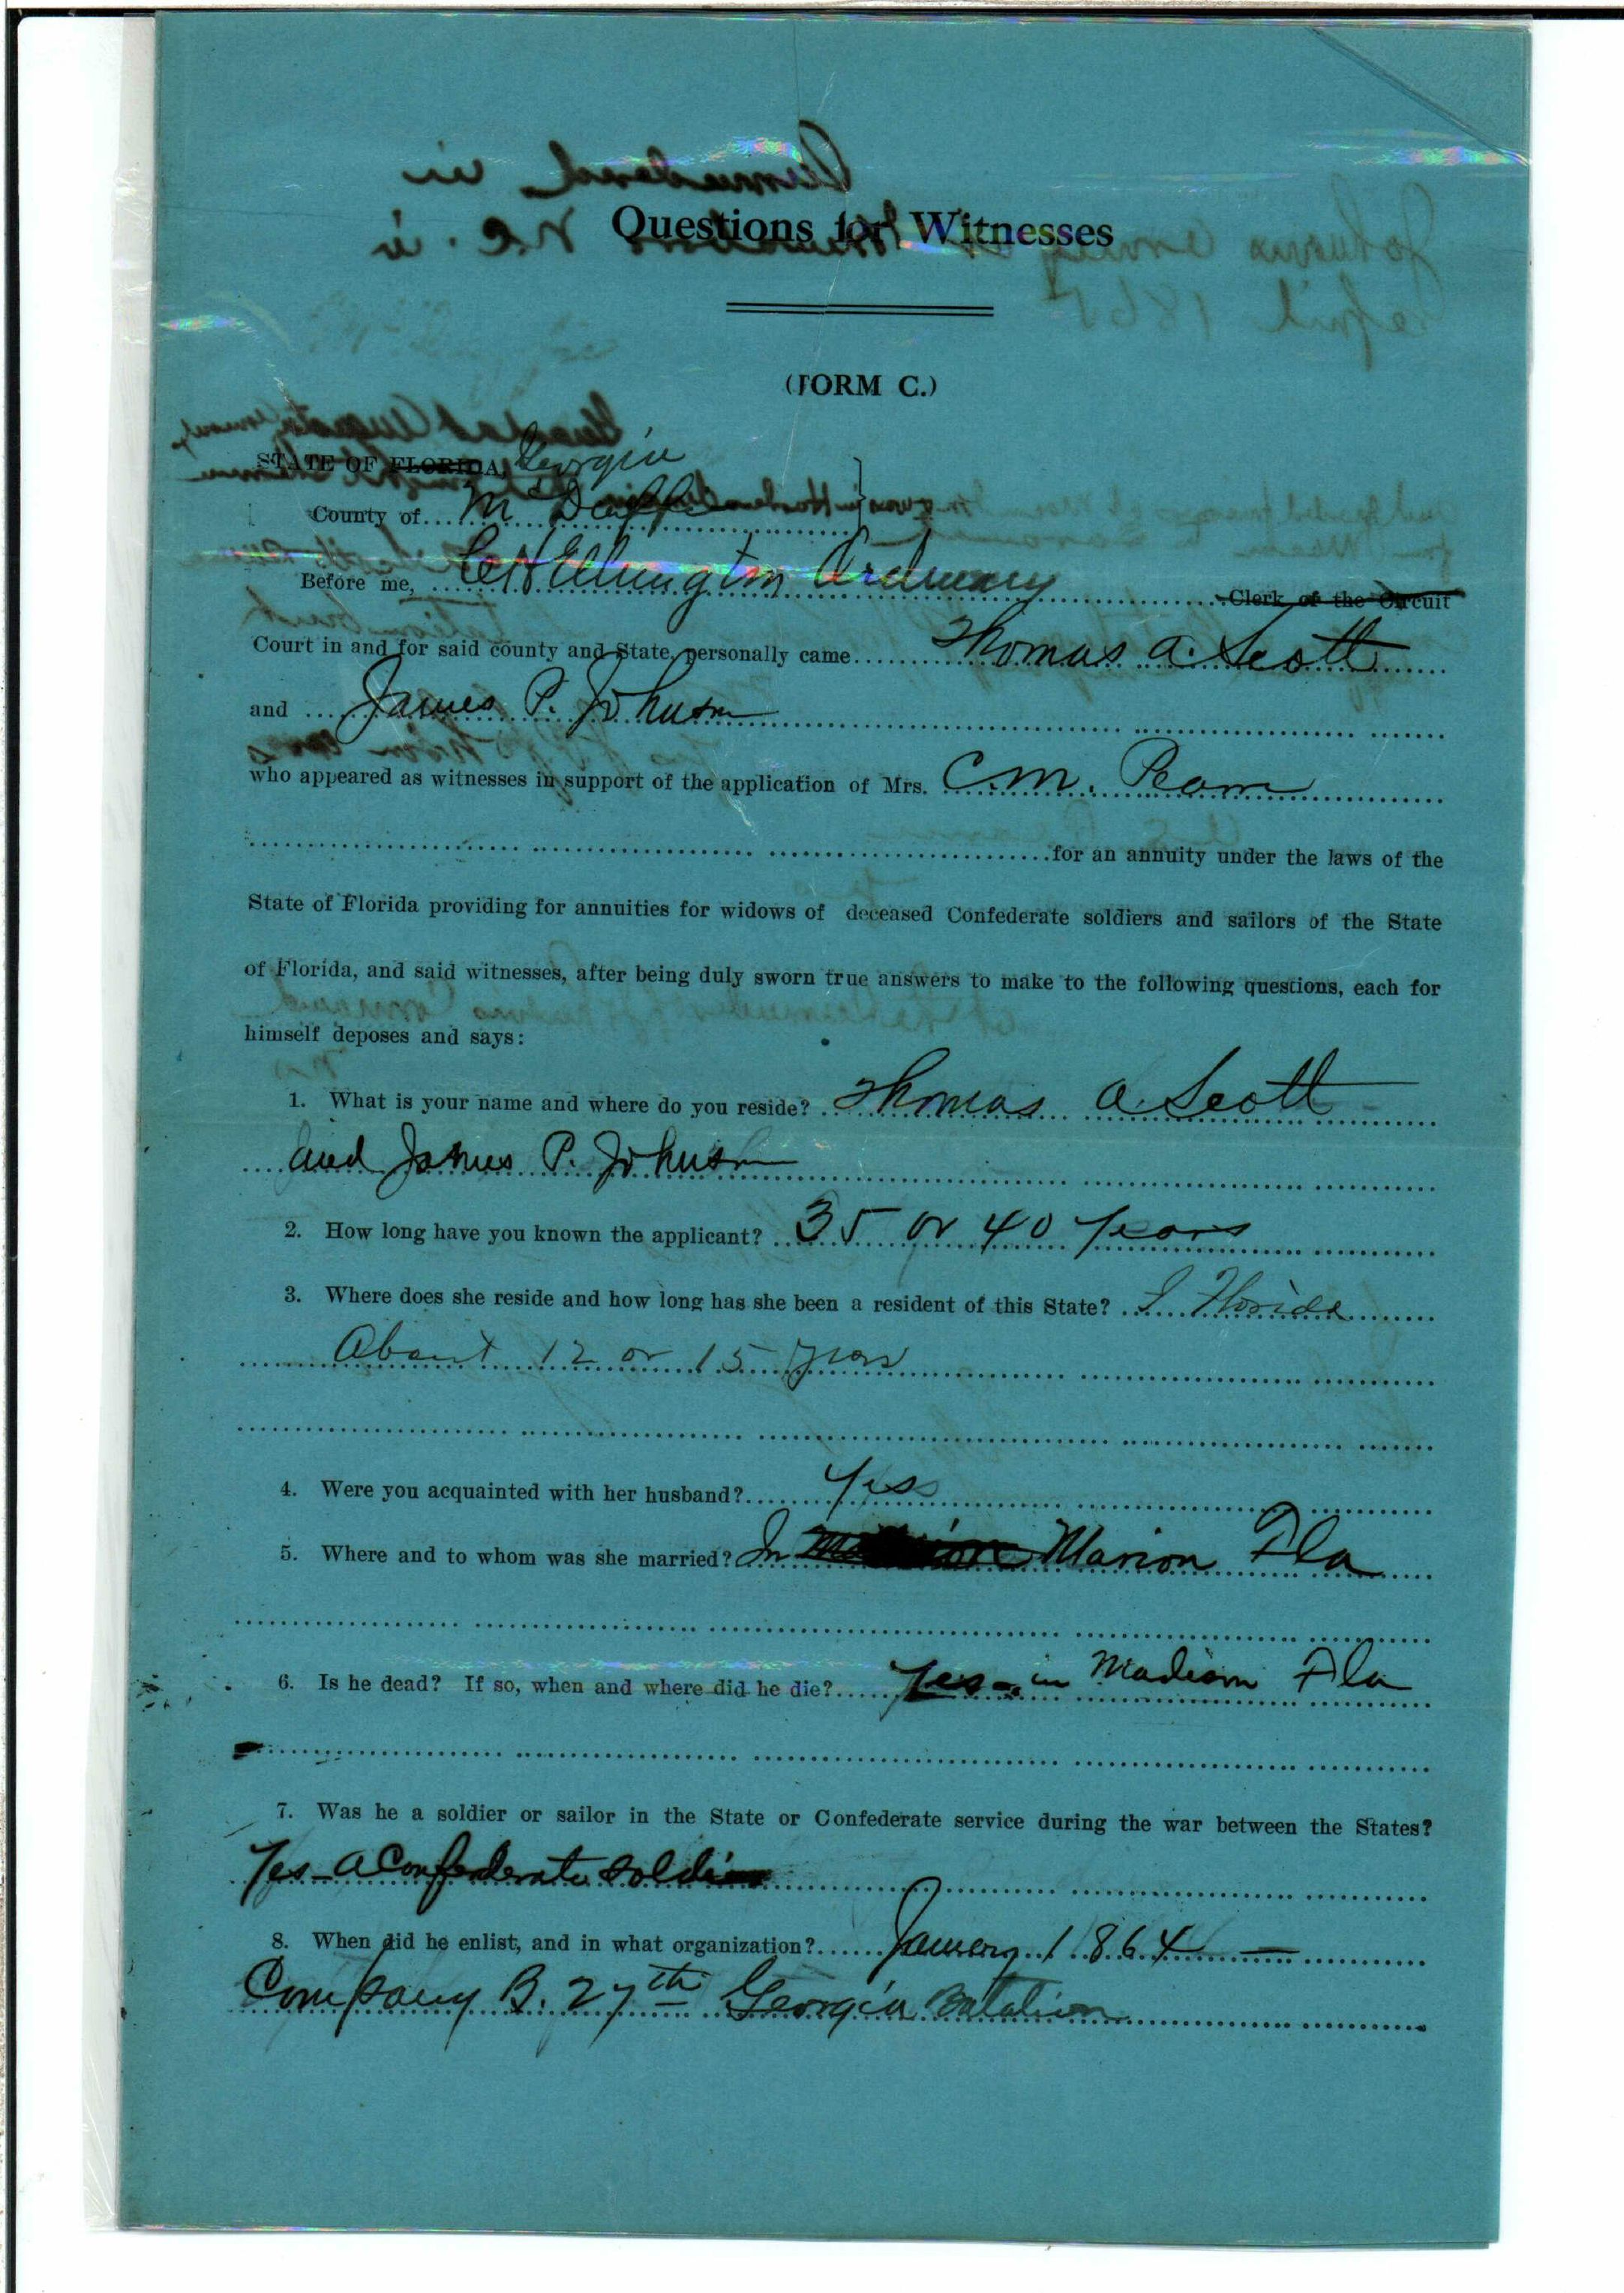 Questions for Witnesses
(FORM C.)
STATE OF FLORIDA, Georgia
County of McDuffie
Before me, Ellington Ordinary Clerk of the Circuit
Court in and for said county and State, personally came Thomas A. Scott
and James P. Johnson
who appeared as witnesses in support of the application of Mrs. C. M. Pearre
for an annuity under the laws of the
State of Florida providing for annuities for widows of deceased Confederate soldiers and sailors of the State
of Florida, and said witnesses, after being duly sworn true answers to make to the following questions, each for
himself deposes and says:
1. What is your name and where do you reside? Thomas A. Scott
and James P. Johnson
2. How long have you known the applicant? 35 or 40 years
3. Where does she reside and how long has she been a resident of this State? Florida
About 12 or 15 years
4. Were you acquainted with her husband? Yes
5. Where and to whom was she married? In Marion Fla
6. Is he dead? If so, when and where did he die? Yes - in Madison Fla
7. Was he a soldier or sailor in the State or Confederate service during the war between the States?
Yes - a Confederate soldier
8. When did he enlist, and in what organization? January 1864
Company B. 27th Georgia Batalion